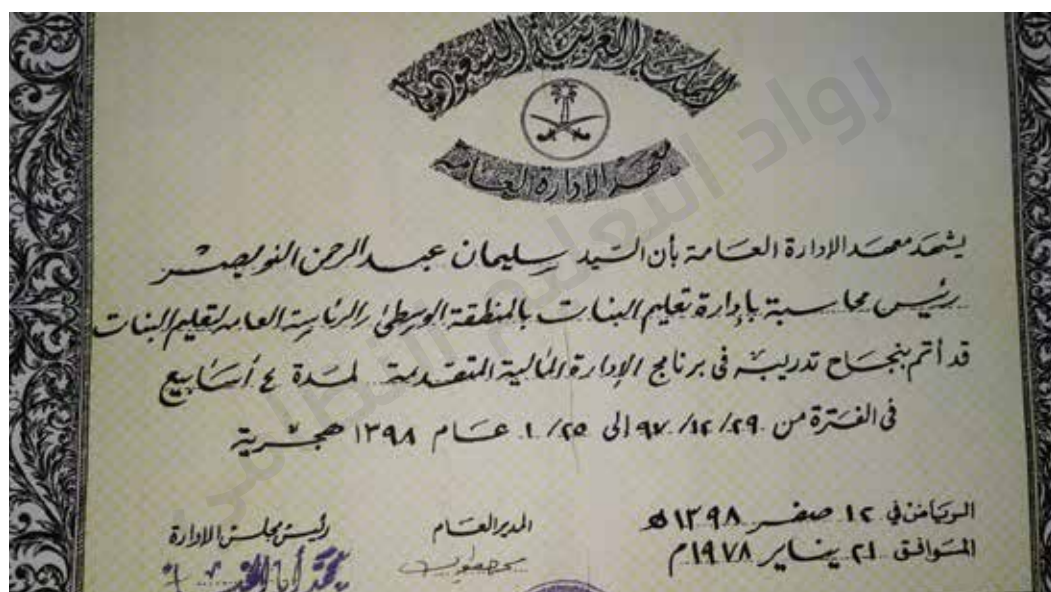 المملكة العربية السعودية
معهد الإدارة العامة
يشهد معهد الإدارة العامة بأن السيد سليمان عبد الرحمن النويصر
رئيس محاسبة بإدارة تعليم البنات بالمنطقة الوسطى الرئاسة العامة لتعليم البنات
قد أتم بنجاح تدريبه في برنامج الإدارة المالية المتقدمة لمدة ٤ أسابيع
في الفترة من ٩٧/١٢/٢٩ الى ١/٢٥ عام ١٣٩٨ هجرية
الرياض في ١٢ صفر ١٣٩٨ هـ
الموافق ٢١ يناير ١٩٧٨ م
المدير العام
رئيس مجلس الادارة
محمد أبا الخيل
رواد التعليم النظامي